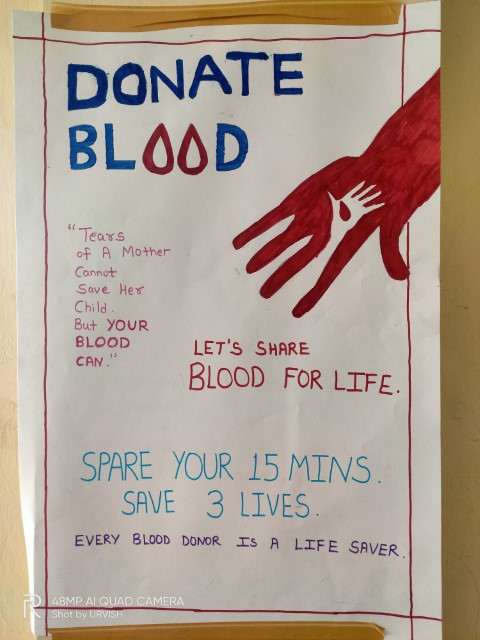 DONATE
BLOOD
"Tears
of A Mother
Cannot
Save Her
Child.
But YOUR
BLOOD
CAN."
LET'S SHARE
BLOOD FOR LIFE.
SPARE YOUR 15 MINS.
SAVE 3 LIVES.
EVERY BLOOD DONOR IS A LIFE SAVER.
R
48MP AI QUAD CAMERA
Shot by URVISH